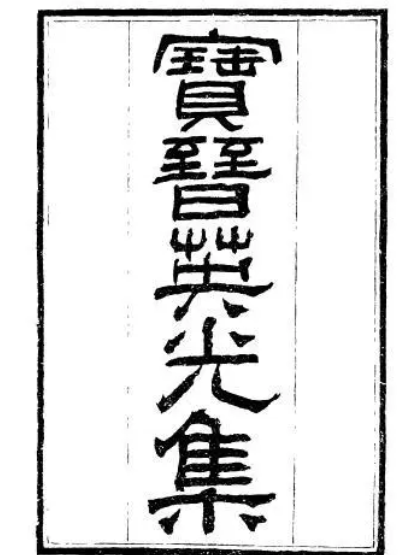 寶晉英光集